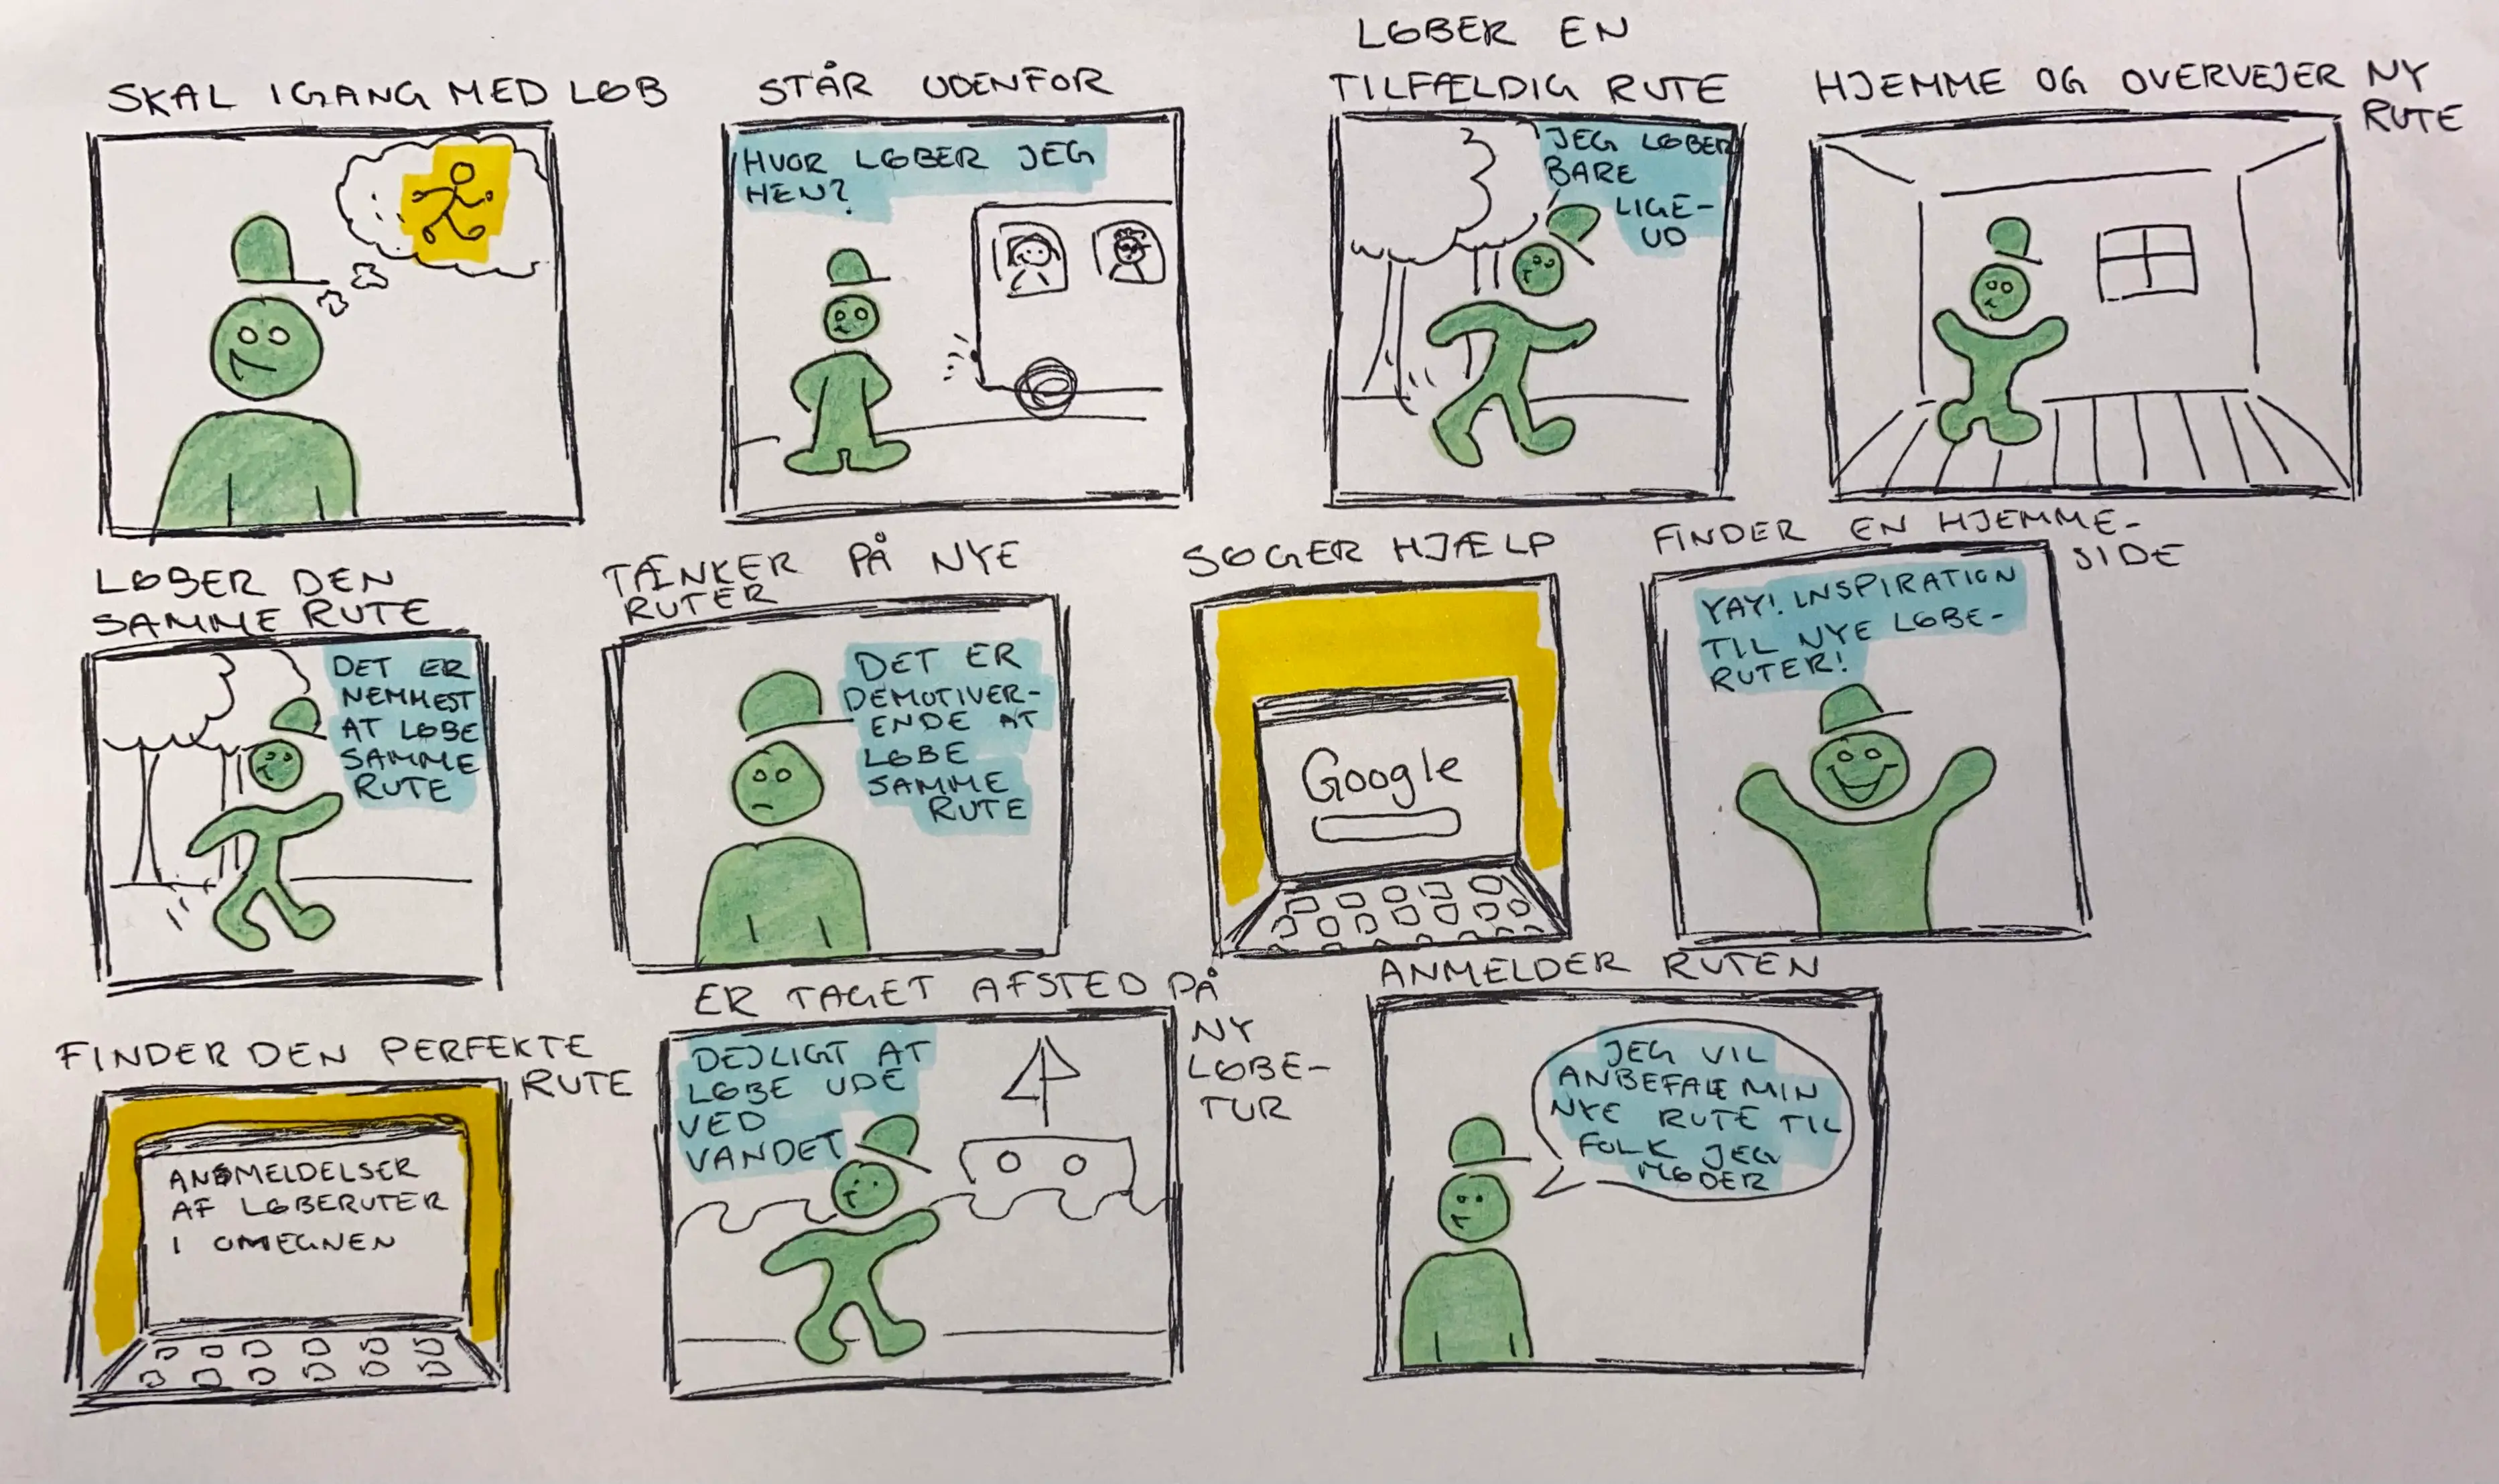 SKAL IGANG MED LØB
STÅR UDENFOR
HVOR LØBER JEG
HEN?
LØBER EN
TILFÆLDIG RUTE
JEG LØBER
BARE
LIGE-
UD
HJEMME OG OVERVEJER NY
RUTE
LØBER DEN
SAMME RUTE
DET ER
NEMMEST
AT LØBE
SAMME
RUTE
TÆNKER PÅ NYE
RUTER
DET ER
DEMOTIVER-
ENDE AT
LØBE
SAMME
RUTE
SØGER HJÆLP
Google
FINDER EN HJEMME-
SIDE
YAY! INSPIRATION
TIL NYE LØBE-
RUTER!
FINDER DEN PERFEKTE
RUTE
ANMELDELSER
AF LØBERUTER
I OMEGNEN
ER TAGET AFSTED PÅ
NY
LØBE-
TUR
DEJLIGT AT
LØBE UDE
VED
VANDET
ANMELDER RUTEN
JEG VIL
ANBEFALE MIN
NYE RUTE TIL
FOLK JEG
MØDER